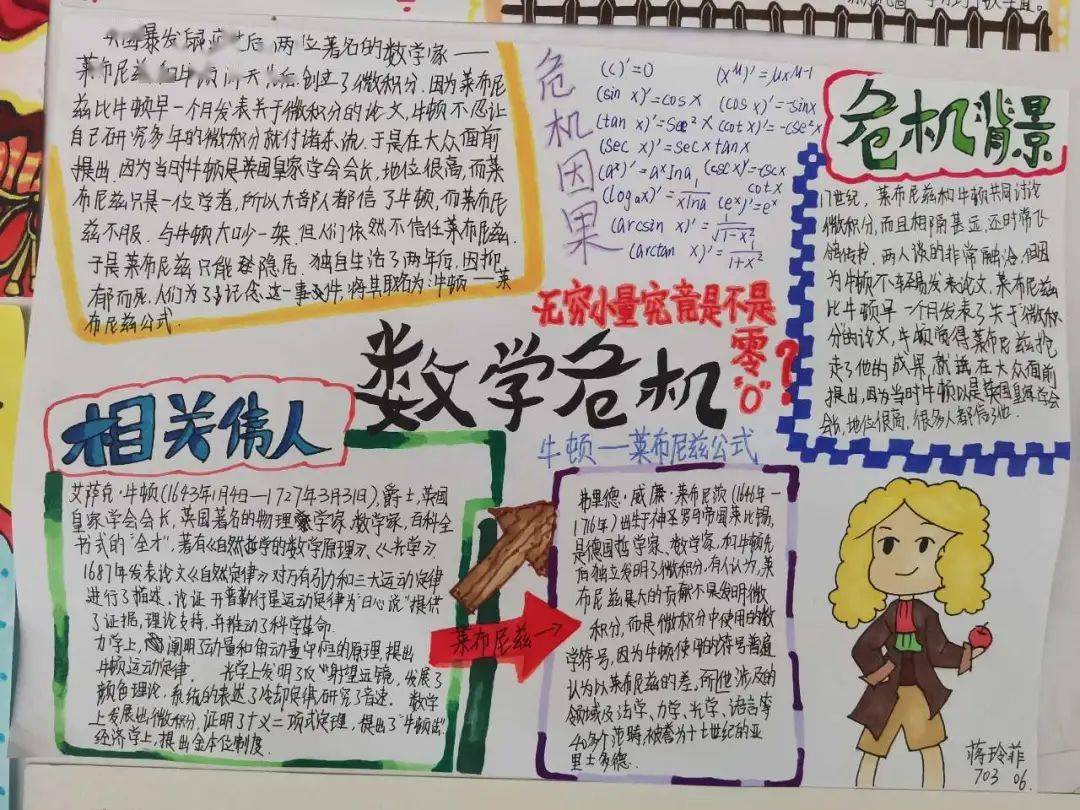 数学危机
无穷小量究竟是不是
零“0”?
牛顿——莱布尼兹公式
后 两位著名的数学家——
莱布尼兹和牛顿 后 创立了微积分.因为莱布尼
兹比牛顿早一个月发表关于微积分的论文,牛顿不忍让
自己研究多年的微积分就付诸东流.于是在大众面前
提出.因为当时牛顿是英国皇家学会会长,地位很高,而莱
布尼兹只是一位学者,所以大部人都信了牛顿,而莱布尼
兹不服.与牛顿大吵一架.但人们依然不信任莱布尼兹.
于是莱布尼兹只能 隐居.独自生活了两年后,因抑
郁而死.人们为了记念这一事件,将其取名为:牛顿——莱
布尼兹公式.
危机因果
(c)'=0 (x^μ)'=μx^μ-1
(sin x)'=cosx (cos x)'=-sinx
(tan x)'=sec²x (cot x)'=-csc²x
(sec x)'=secxtanx
(a^x)'=a^x lna (csc x)'=-cscx
cotx
(logax)'=1/xlna (e^x)'=e^x
(arcsin x)'=1/√1-x²
(arctan x)'=1/1+x²
危机背景
17世纪,莱布尼兹和牛顿共同讨论
微积分,而且相隔甚远,还时常飞
鸽传书.两人谈的非常融洽.但因
为牛顿不轻易发表论文.莱布尼兹
比牛顿早一个月发表了关于微积
分的论文,牛顿觉得莱布尼兹抢
走了他的成果,就 在大众面前
提出,因为当时牛顿 是英国皇家学会
会长,地位很高,很多人都信了他.
相关伟人
艾萨克·牛顿(1643年1月4日—1727年3月31日),爵士,英国
皇家学会会长,英国著名的物理学家,数学家,百科全
书式的“全才”,著有《自然哲学的数学原理》、《光学》
1687年发表论文《自然定律》对万有引力和三大运动定律
进行了描述.论证开普勒行星运动定律为“日心说”提供
了证据,理论支持,并推动了科学革命.
力学上,阐明了动量和角动量守恒的原理,提出
牛顿运动定律. 光学上发明了反射望远镜,发展了
颜色理论,系统的表达了冷却定律,研究了音速. 数学
上发展出微积分,证明了广义二项式定理,提出了“牛顿
经济学上,提出金本位制度.
莱布尼兹→
弗里德·威廉·莱布尼茨(1646年—
1716年)出生于神圣罗马帝国莱比锡,
是德国哲学家、数学家,和牛顿先
后独立发明了微积分,有人认为,莱
布尼兹最大的贡献不是发明微
积分,而是微积分中使用的数
学符号,因为牛顿使用的符号普遍
认为以莱布尼兹的差,所他涉及的
领域及法学、力学、光学、语言等
40多个范畴,被誉为十七世纪的亚
里士多德.
蒋玲菲
703 06.